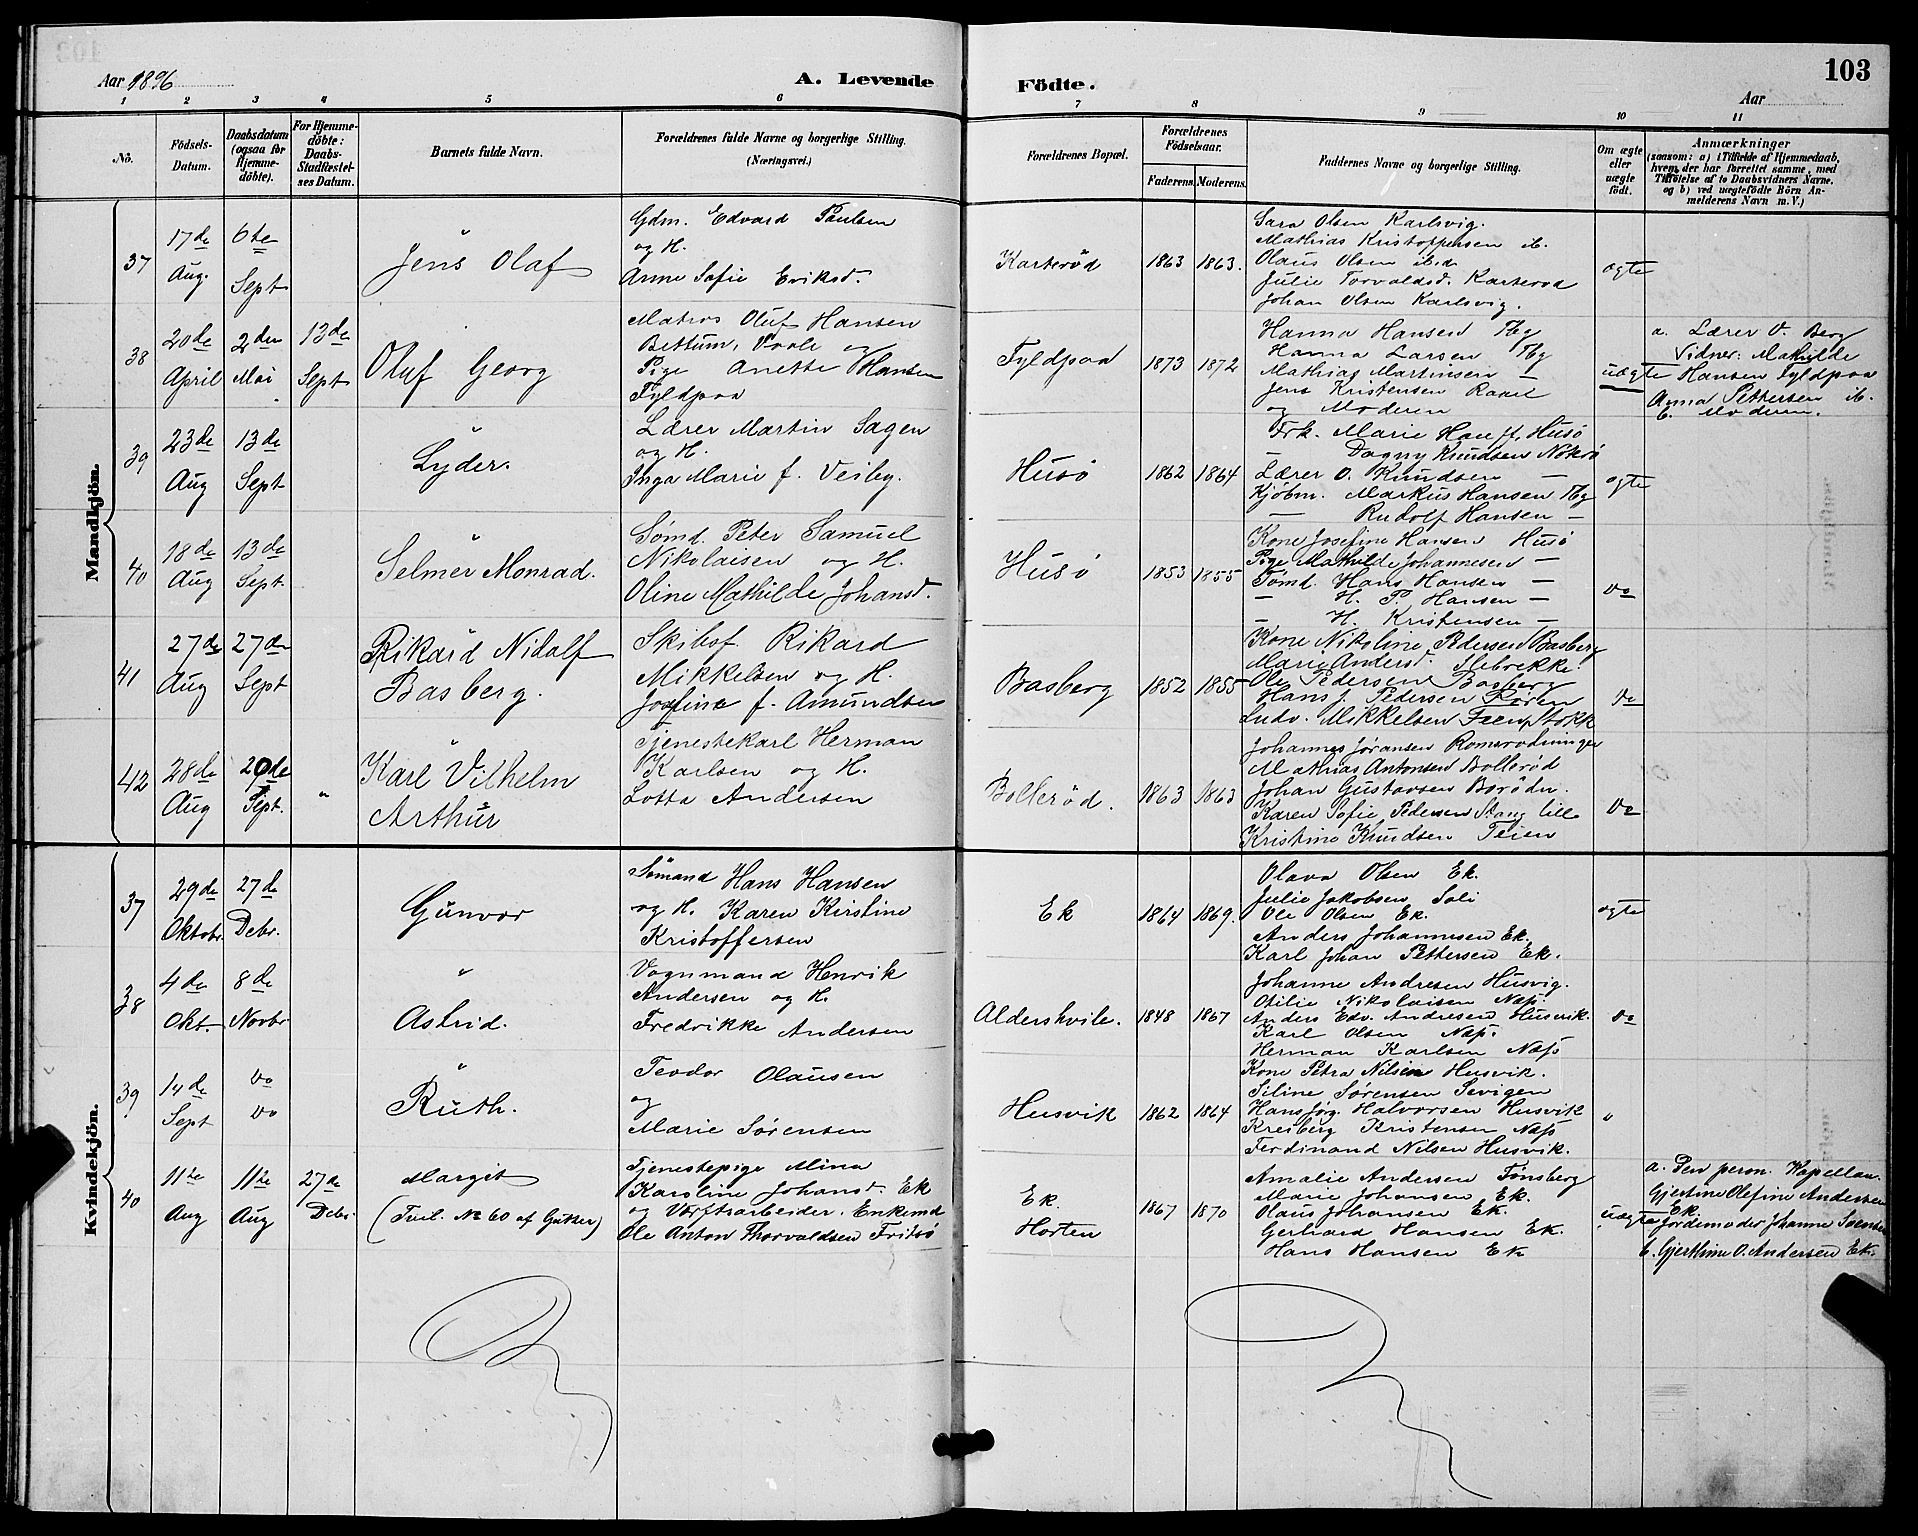 Aar 1896
A. Levende
Födte.
103
Aar
1 2 3 4 5 6 7 8 9 10 11
No.
Födsels-Datum.
Daabsdatum (ogsaa for Hjemme-döbte).
For Hjemme-döbte: Daabs-Stadfæstelses Datum.
Barnets fulde Navn.
Forældrenes fulde Navne og borgerlige Stilling. (Næringsvei.)
Forældrenes Bopæl.
Forældrenes Födselsaar.
Faderens. Moderens.
Faddernes Navne og borgerlige Stilling.
Om ægte eller uægte födt.
Anmærkninger
(saasom: a) i Tilfælde af Hjemmedaab,
hvem der har forrettet samme, med
Tilföielse af to Daabsvidners Navne,
og b) ved uægtefödte Börn An-
melderens Navn m. V.)
Mandkjön.
37
17de Aug.
6te Sept
Jens Olaf
Gdm. Edvard Paulsen
og H.
Anne Sofie Eriksd.
Karterød
1863
1863.
Sara Olsen Karlsvig.
Mathias Kristoffersen ib.
Olaus Olsen ibd
Julie Torvaldsd. Karterød
Johan Olsen Karlsvig.
ægte
38
20de April
2den Mai
13de Sept
Oluf Georg
Matros Oluf Hansen
Bettum, Vaale og
Pige Anette Hansen
Fyldpaa
Fyldpaa
1873
1872
Hanna Hansen Tbg
Hanna Larsen Tbg
Mathias Martinsen —
Jens Kristensen Raael
og Moderen
uægte
a. Lærer O. Berg
Vidner: Mathilde
Hansen Fyldpaa
Anna Pettersen ib.
b. Moderen.
39
23de Aug
13de Sept
Lyder.
Lærer Martin Sagen
og H.
Inga Marie f. Veiby.
Husø
1862
1864
Frk. Marie Hauff, Husø
— Dagny Knudsen Nøtterø
Lærer O. Knudsen —
Kjøbm. Markus Hansen Tbg
— Rudolf Hansen —
ægte
40
18de Aug
13de Sept.
Selmer Monrad.
Sømd. Peter Samuel
Nikolaisen og H.
Oline Mathilde Johansd.
Husø
1853
1855
Kone Josefine Hansen Husø
Pige Mathilde Johannesen —
Tømd. Hans Hansen —
— H. P. Hansen —
— H. Kristensen —
do
41
27de Aug
27de Sept
Rikard Nidalf
Basberg.
Skibsf. Rikard
Mikkelsen og H.
Josefine f. Amundsen
Basberg
1852
1855
Kone Nikoline Pedersen Basberg
Marie Andersd. Slebrekke.
Ole Pedersen Basberg
Hans J. Pedersen Røren
Ludv. Mikkelsen Freng Stokk
do
42
28de Aug
20de Sept.
"
Karl Vilhelm
Arthur
Tjenestekarl Herman
Karlsen og H.
Lotta Andersen
Bollerød.
1863
1863
Johannes Jøransen Romsrodninger
Mathias Antonsen Bollerød
Johan Gustavsen Borødn.
Karen Sofie Pedersen Stang lille
Kristine Knudsen Teien
do
Kvindekjön.
37
29de Oktobr.
27de Debr.
Gunvor
Sømand Hans Hansen
og H. Karen Kirstine
Kristoffersen
Ek
1864
1869.
Olava Olsen Ek.
Julie Jakobsen Soli
Ole Olsen Ek.
Anders Johannesen Ek.
Karl Johan Pettersen Ek.
ægte
38
4de Okt.
8de Novbr
Astrid.
Vognmand Henrik
Andersen og H.
Fredrikke Andersen
Aldershvile.
1848
1867
Johanne Andresen Husvig.
Otilie Nikolaisen Næs.
Anders Edv. Andresen Husvik.
Karl Olsen Næs.
Herman Karlsen Næs
do
39
14de Sept
do do
Ruth.
Teodor Olausen
og
Marie Sørensen
Husvik
1862
1864
Kone Petra Nilsen Husvik.
Siline Sørensen Sevigen
Hans Jørg. Halvorsen Husvik
Kreiberg Kristensen Næs
Ferdinand Nilsen Husvik.
"
40
11te Aug
11te Aug
27de Debr
Margit
(Tvil. No 60 af Gutter)
Tjenestepige Mina
Karoline Johansd. Ek
og Værftsarbeider. Enkemd
Ole Anton Thorvaldsen Fritsø
Ek.
Horten
1867
1870
Amalie Andersen Tønsberg
Marie Johansen Ek.
Olaus Johansen Ek.
Gerhard Hansen Ek.
Hans Hansen Ek
uægte
a. Pen person. Kapellan.
Gjertine Olefine Andersen
Ek.
Jordemoder Johanne Svensen
b. Gjerthine O. Andersen Ek.